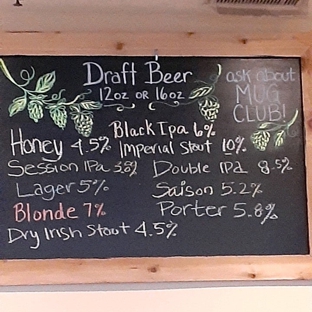 Draft Beer
12oz OR 16oz
ask about
MUG
CLUB!
Black Ipa 6%
Honey 4.5%
Imperial Stout 10%
Session IPa 3.8%
Double IPA 8.5%
Lager 5%
Saison 5.2%
Blonde 7%
Porter 5.8%
Dry Irish Stout 4.5%